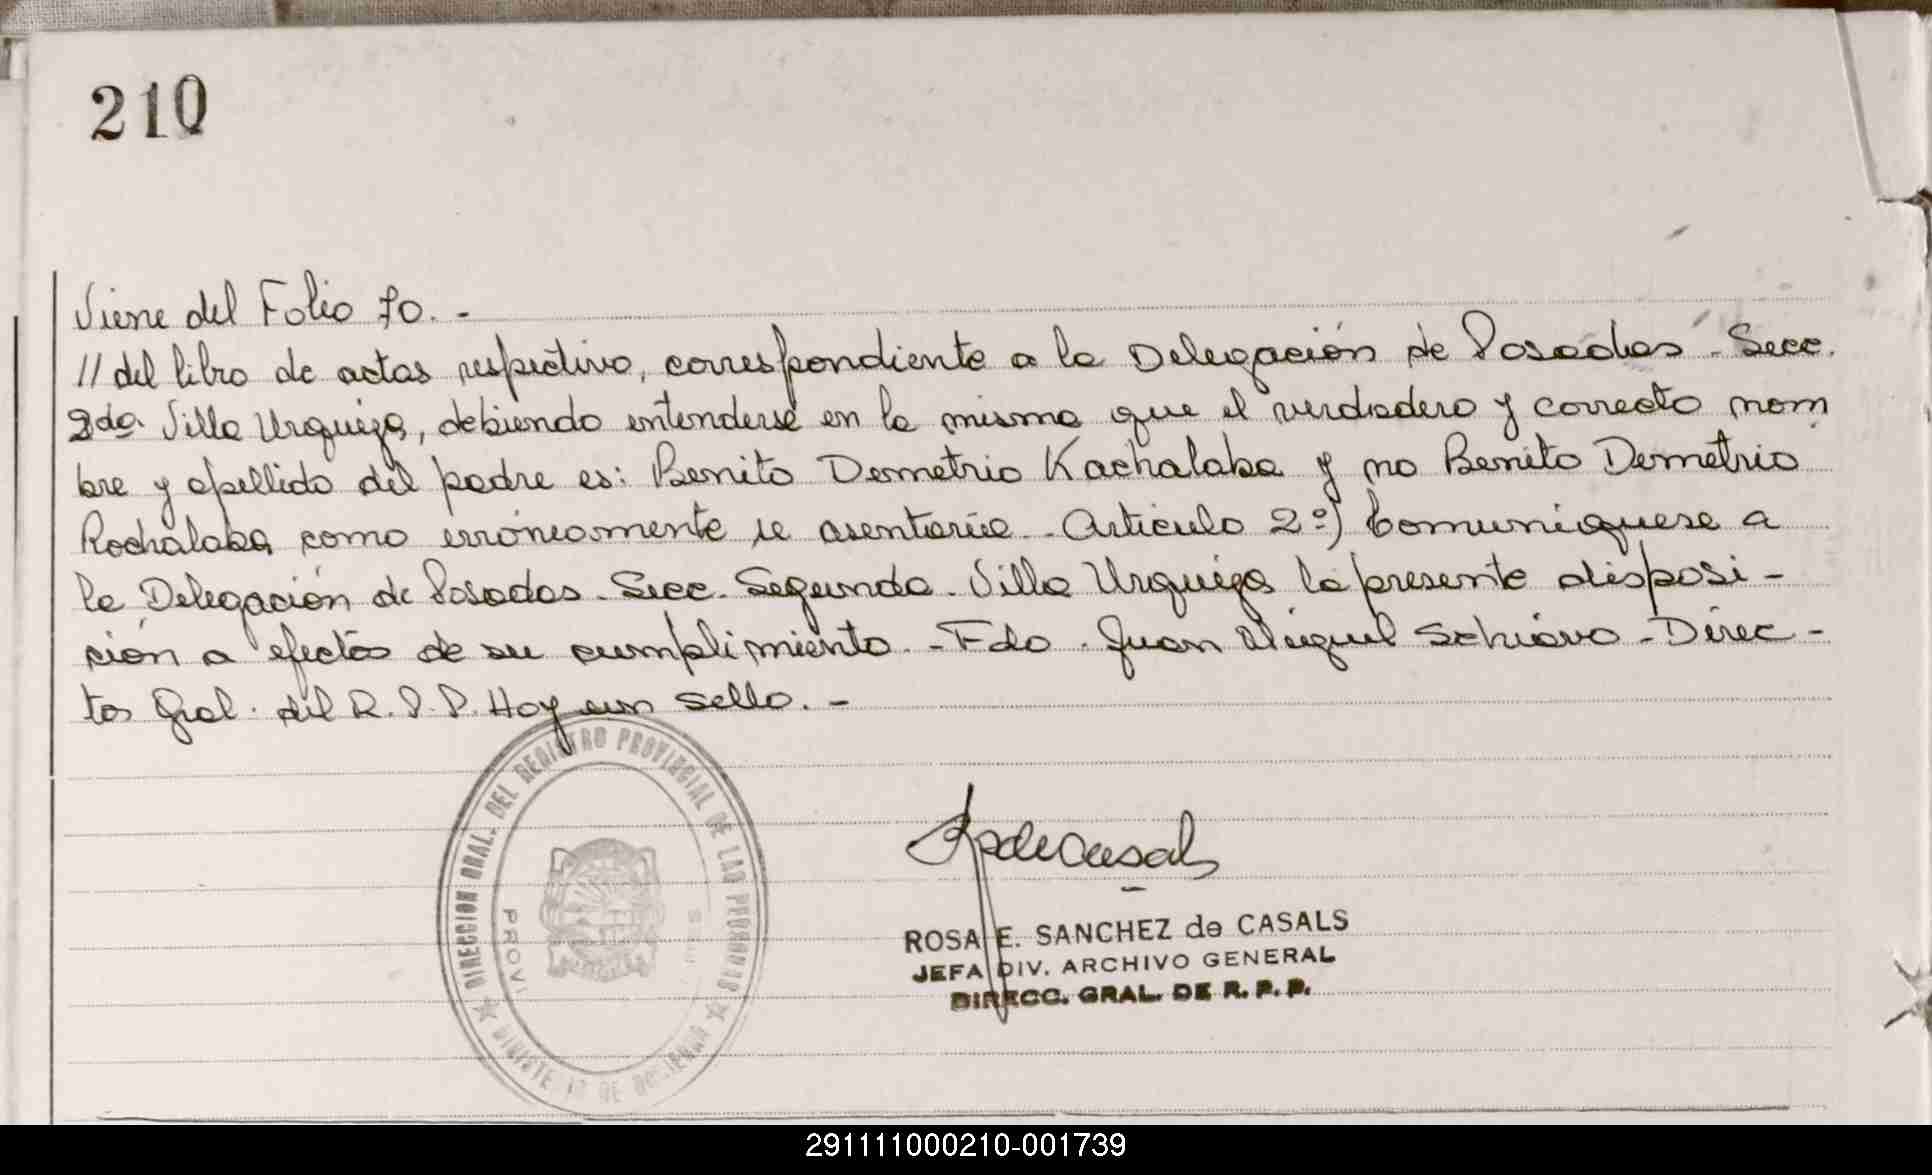 210
Viene del Folio 70. -
// del libro de actas respectivo, correspondiente a la Delegación de Posadas - Secc.
2da. Villa Urquiza, debiendo entenderse en la misma que el verdadero y correcto nom
bre y apellido del padre es: Benito Demetrio Kachalaba y no Benito Demetrio
Rochalaba como erróneamente se asentaría - Artículo 2º) Comuníquese a
la Delegación de Posadas - Secc. Segunda - Villa Urquiza la presente disposi -
ción a efectos de su cumplimiento. - Fdo. Juan Miguel Schiavo - Direc -
tor Gral. del R. P. P. Hay un sello. -
DIRECCION GRAL. DEL REGISTRO PROVINCIAL DE LAS PERSONAS
PROVI
ROSA E. SANCHEZ de CASALS
JEFA DIV. ARCHIVO GENERAL
DIRECC. GRAL. DE R. P. P.
291111000210-001739